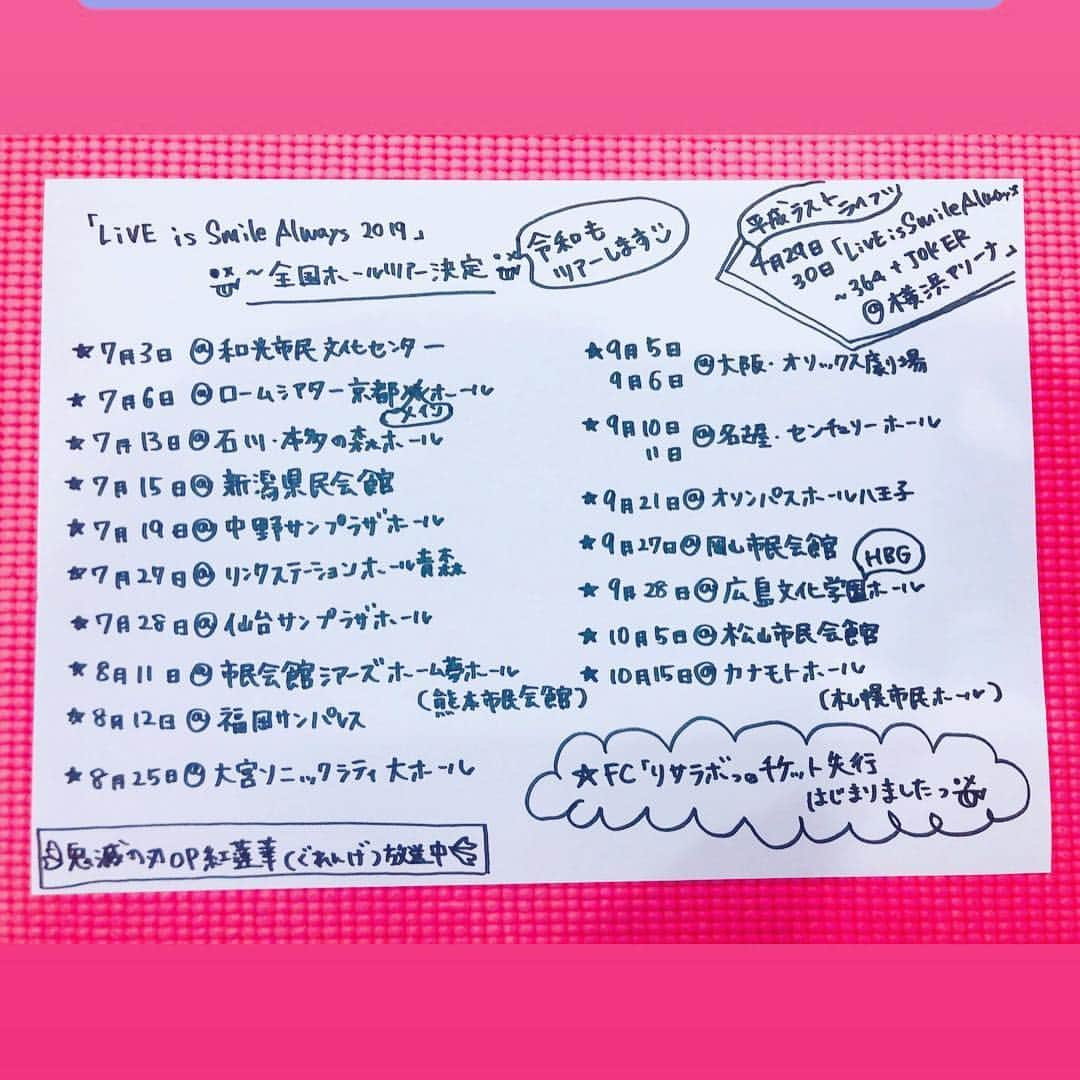 「LiVE is Smile Always 2019」
～全国ホールツアー決定
令和も
ツアーします
平成ラストライブ
4月29日「LiVE is Smile Always
30日 ～364+JOKER
@横浜アリーナ」
★7月3日 @和光市民文化センター
★7月6日 @ロームシアター京都 ホール
メイン
★7月13日@石川・本多の森ホール
★7月15日@新潟県民会館
★7月19日@中野サンプラザホール
★7月27日@リンクステーションホール青森
★7月28日@仙台サンプラザホール
★8月11日@市民会館シアーズホーム夢ホール
(熊本市民会館)
★8月12日@福岡サンパレス
★8月25日@大宮ソニックシティ大ホール
★9月5日
9月6日 @大阪・オリックス劇場
★9月10日
11日 @名古屋・センチュリーホール
★9月21日@オリンパスホール八王子
★9月27日@岡山市民会館
HBG
★9月28日@広島文化学園ホール
★10月5日@松山市民会館
★10月15日@カナモトホール
(札幌市民ホール)
★FC「リサラボっ」チケット先行
はじまりましたっ
鬼滅の刃OP紅蓮華(ぐれんげ)放送中